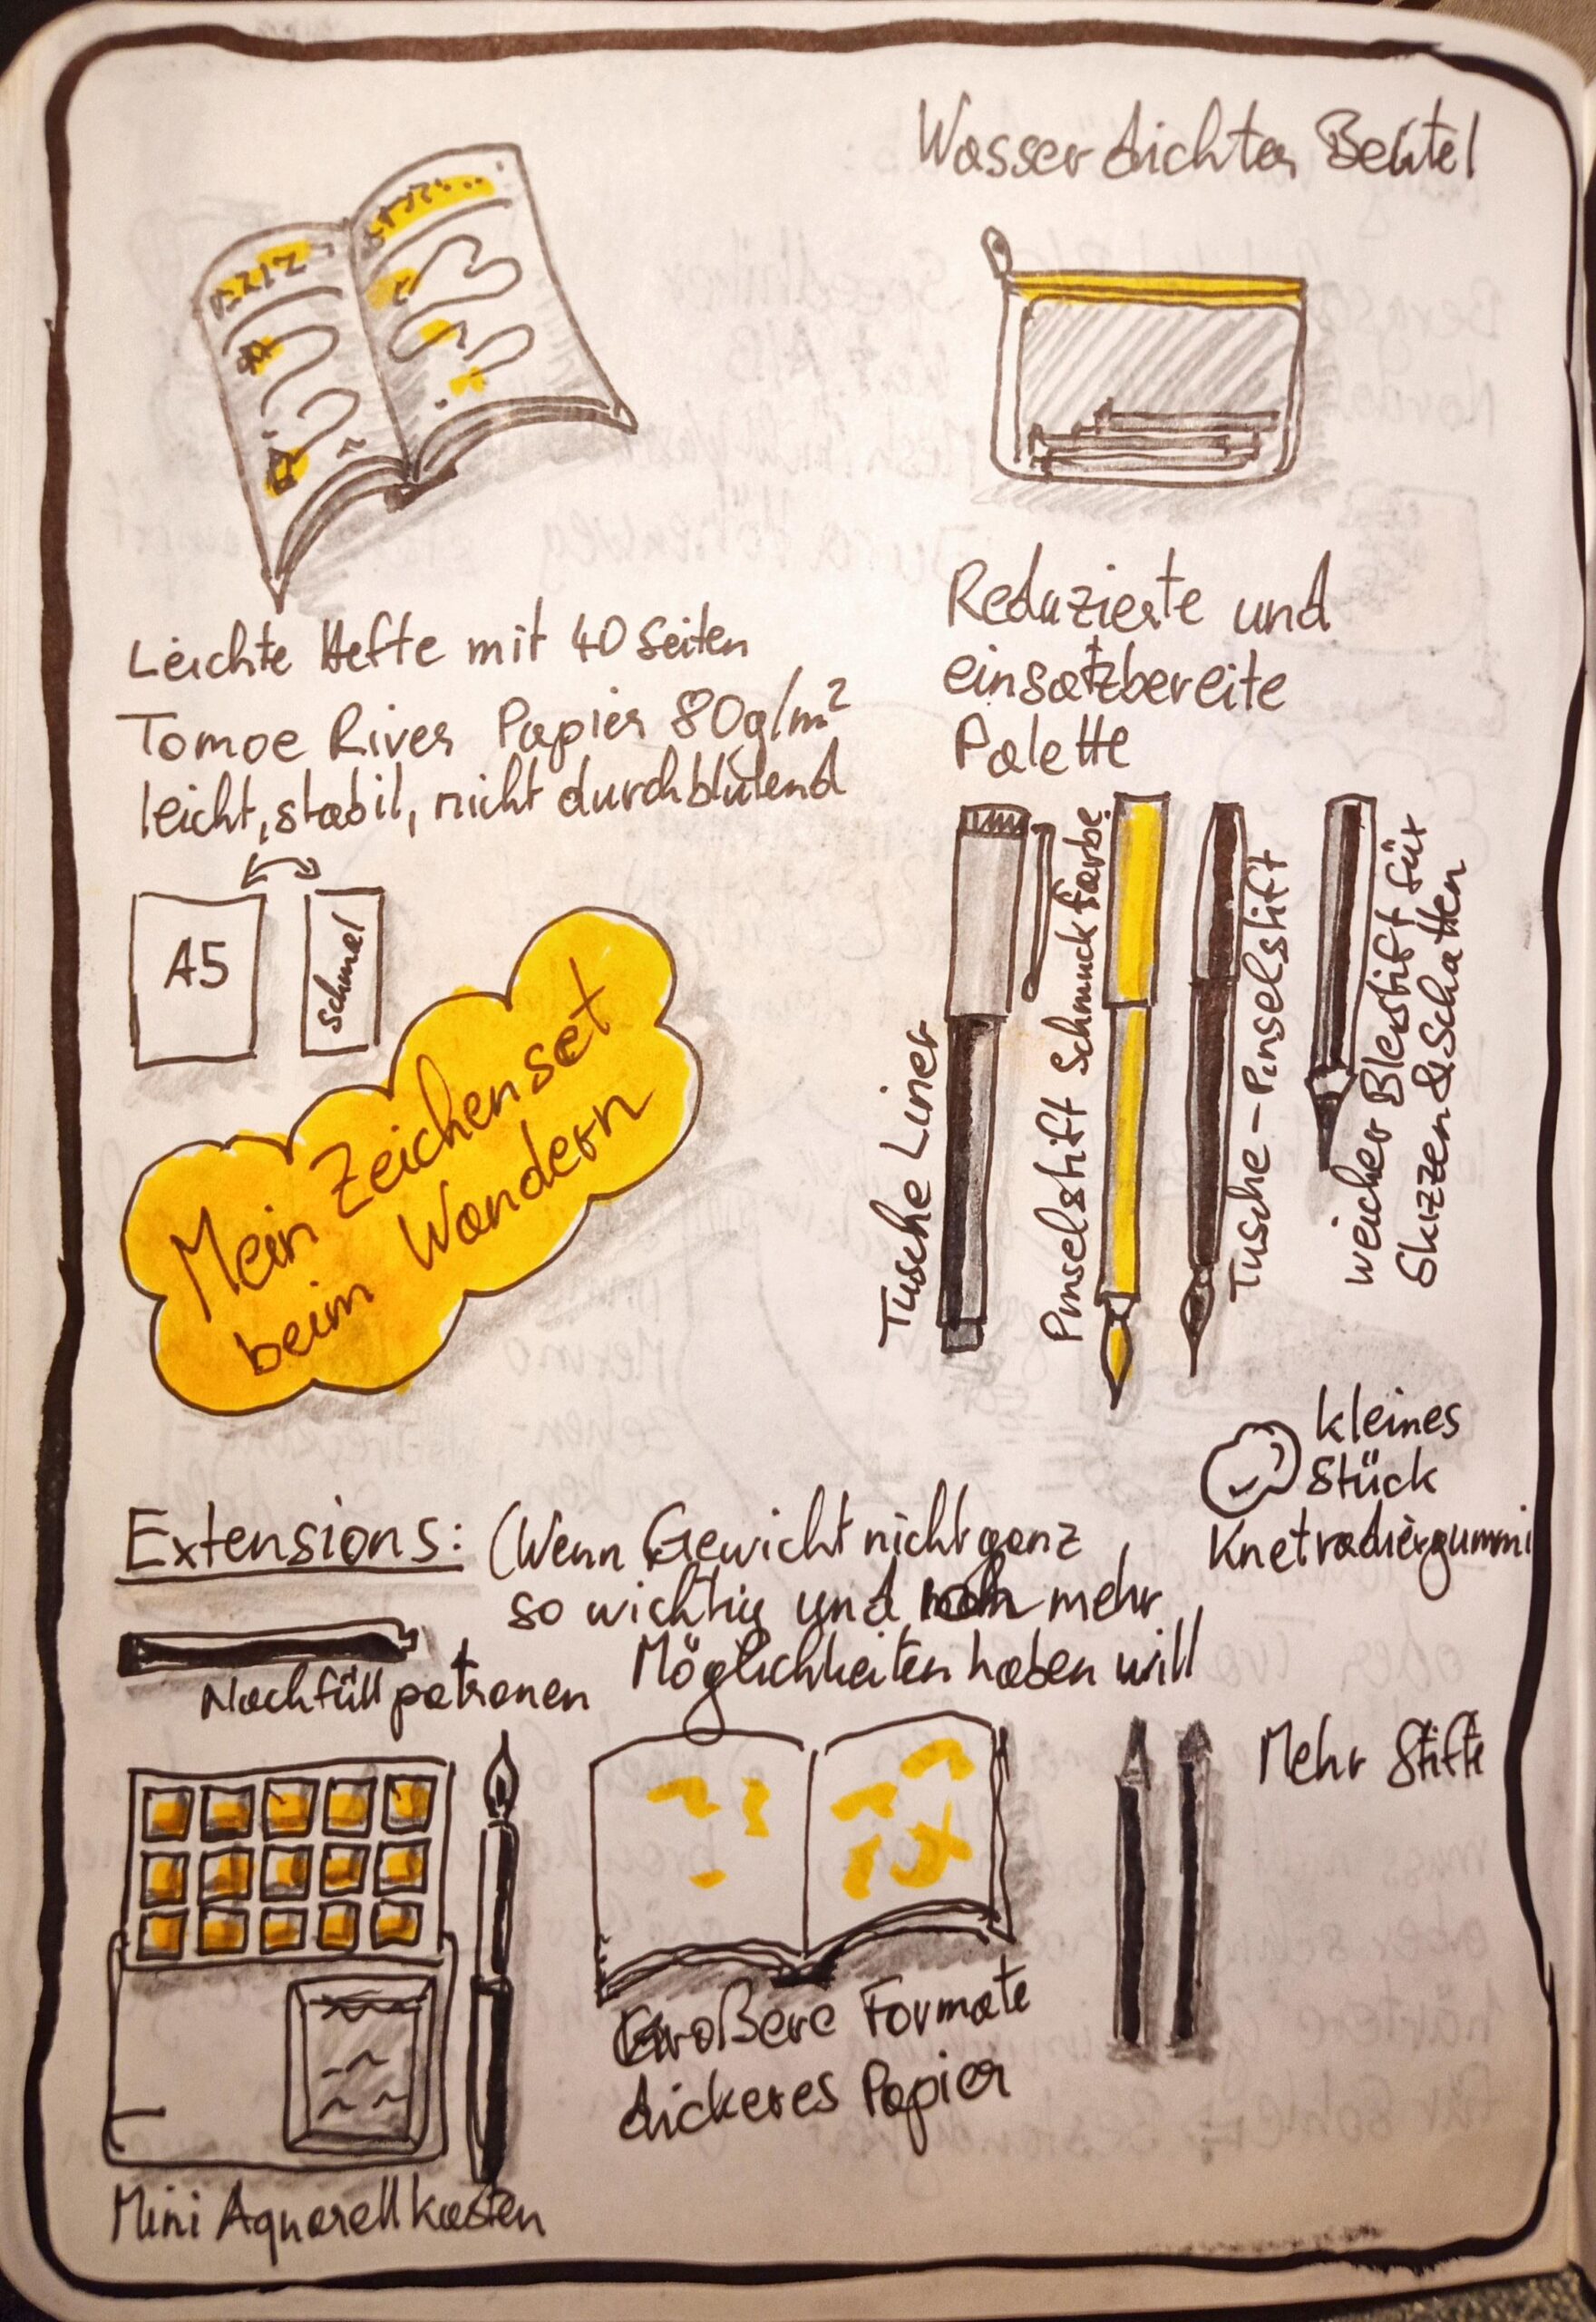 Wasserdichter Beutel
Leichte Hefte mit 40 Seiten
Tomoe River Papier 80g/m²
leicht, stabil, nicht durchblutend
A5
schmal
Mein Zeichenset
beim Wandern
Reduzierte und
einsatzbereite
Palette
Tusche Liner
Pinselstift Schmuckfarbe
Tusche-Pinselstift
weicher Bleistift für
Skizzen & Schatten
kleines
Stück
Knetradiergummi
Extensions: (Wenn Gewicht nicht ganz
so wichtig und mehr
Möglichkeiten haben will
Nachfüllpatronen
Mini Aquarellkasten
Größere Formate
dickeres Papier
Mehr Stifte